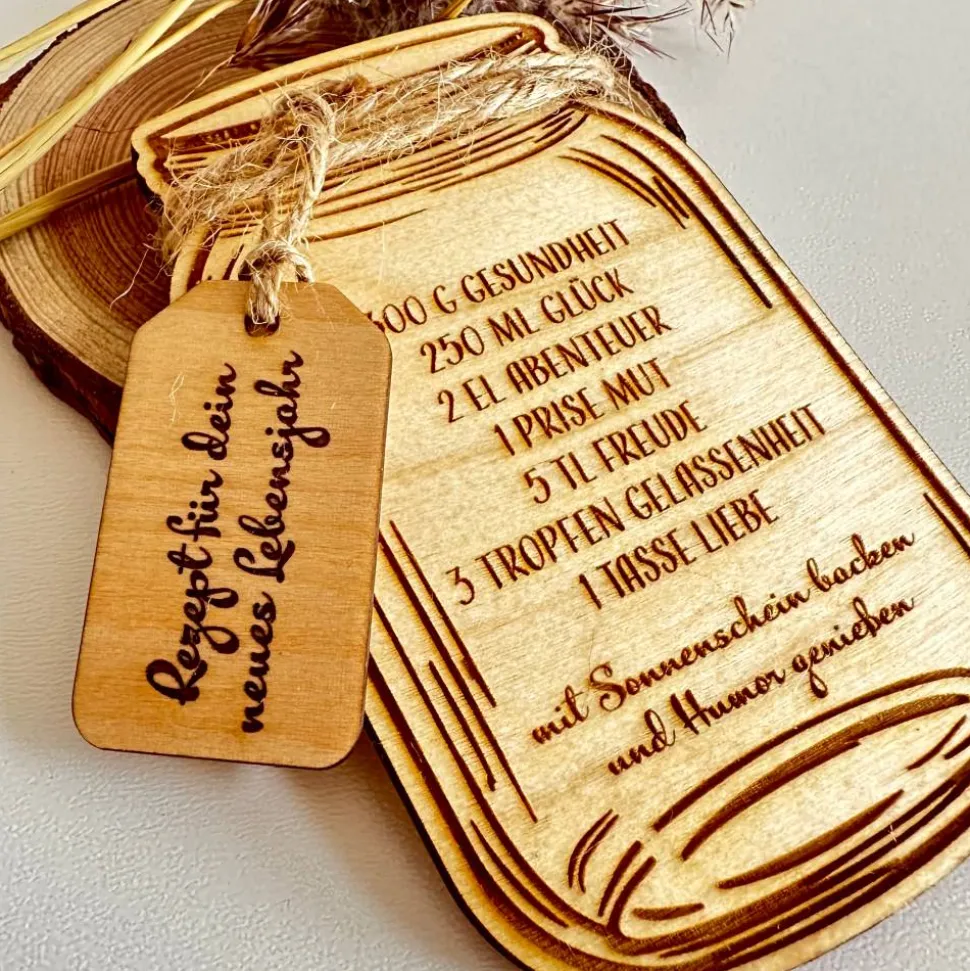 Rezept für dein
neues Lebensjahr
500 G GESUNDHEIT
250 ML GLÜCK
2 EL ABENTEUER
1 PRISE MUT
5 TL FREUDE
3 TROPFEN GELASSENHEIT
1 TASSE LIEBE
mit Sonnenschein backen
und Humor genießen